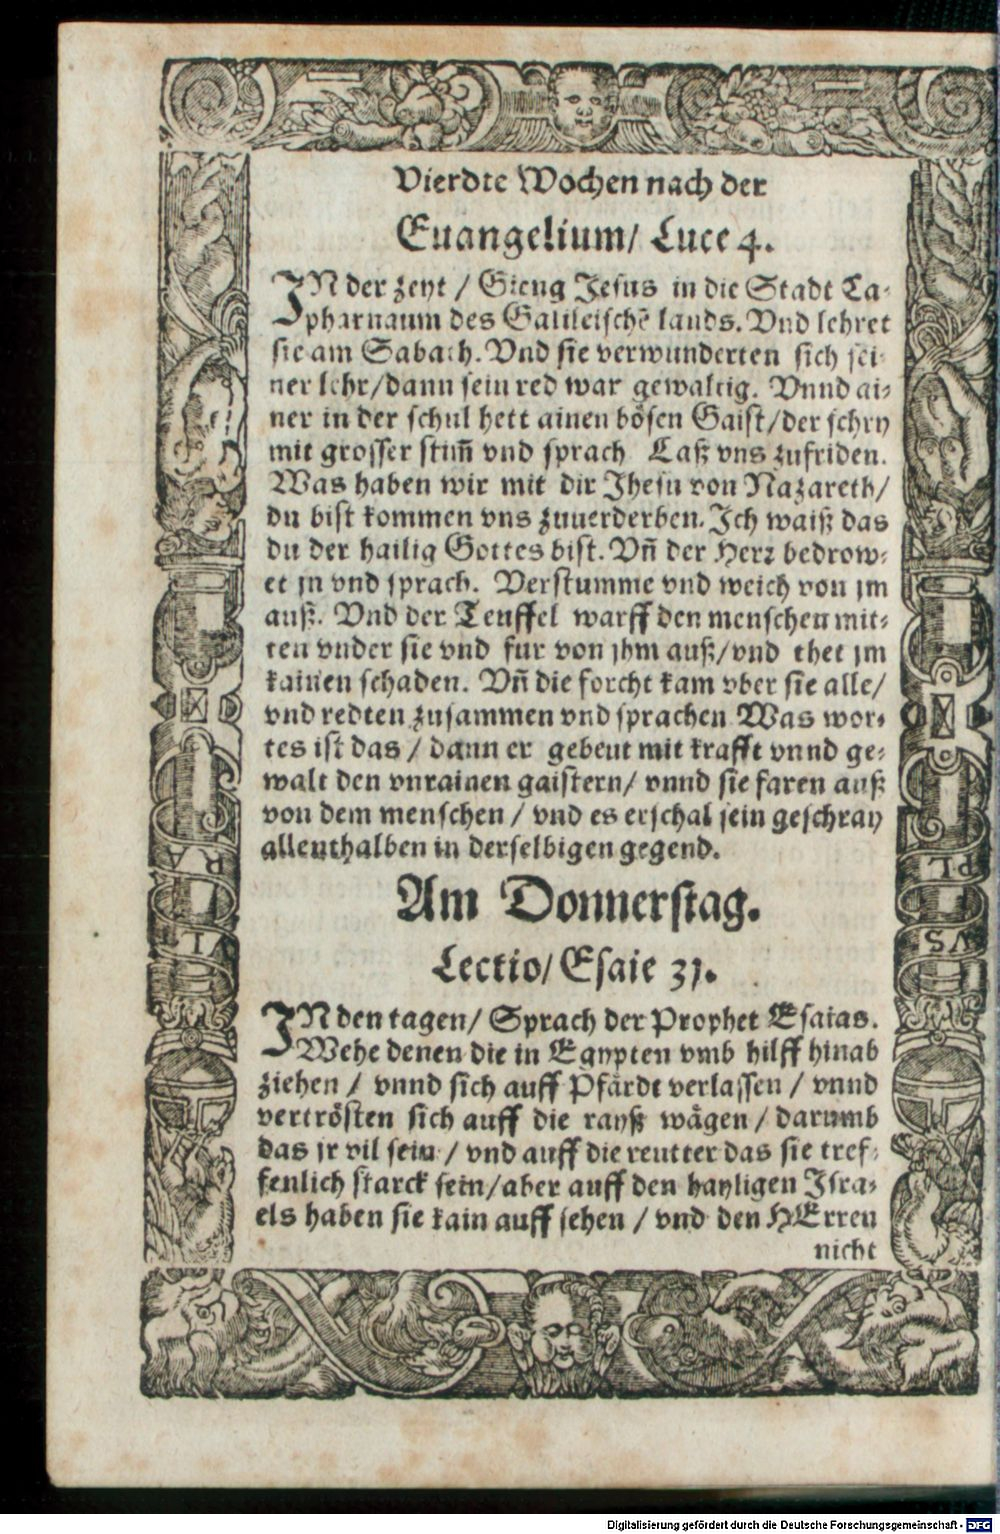 Vierdte Wochen nach der
Euangelium/ Luce 4.
IN der zeyt / Gieng Jesus in die Stadt Ca-
pharnaum des Galileischē lands. Vnd lehret
sie am Sabath. Vnd sie verwunderten sich sei-
ner lehr/dann sein red war gewaltig. Vnnd ai-
ner in der schul hett ainen bösen Gaist/der schry
mit grosser stim̄ vnd sprach Laß vns zufriden.
Was haben wir mit dir Jhesu von Nazareth/
du bist kommen vns zuuerderben. Ich waiß das
du der hailig Gottes bist. Vn̄ der Herr bedrow-
et jn vnd sprach. Verstumme vnd weich von jm
auß. Vnd der Teuffel warff den menschen mit-
ten vnder sie vnd fur von jhm auß/vnd thet jm
kainen schaden. Vn̄ die forcht kam vber sie alle/
vnd redten zusammen vnd sprachen Was wor-
tes ist das / dann er gebeut mit krafft vnnd ge-
walt den vnrainen gaistern/ vnnd sie faren auß
von dem menschen / vnd es erschal sein geschray
allenthalben in derselbigen gegend.
Am Donnerstag.
Lectio/ Esaie 31.
IN den tagen/ Sprach der Prophet Esaias.
Wehe denen die in Egypten vmb hilff hinab
ziehen / vnnd sich auff Pfärdt verlassen / vnnd
vertrösten sich auff die rayß wägen / darumb
das jr vil sein / vnd auff die reutter das sie tref-
fenlich starck sein/aber auff den hayligen Isra-
els haben sie kain auff sehen / vnd den HErren
nicht
RA
VL
PL
VS
Digitalisierung gefördert durch die Deutsche Forschungsgemeinschaft - DFG